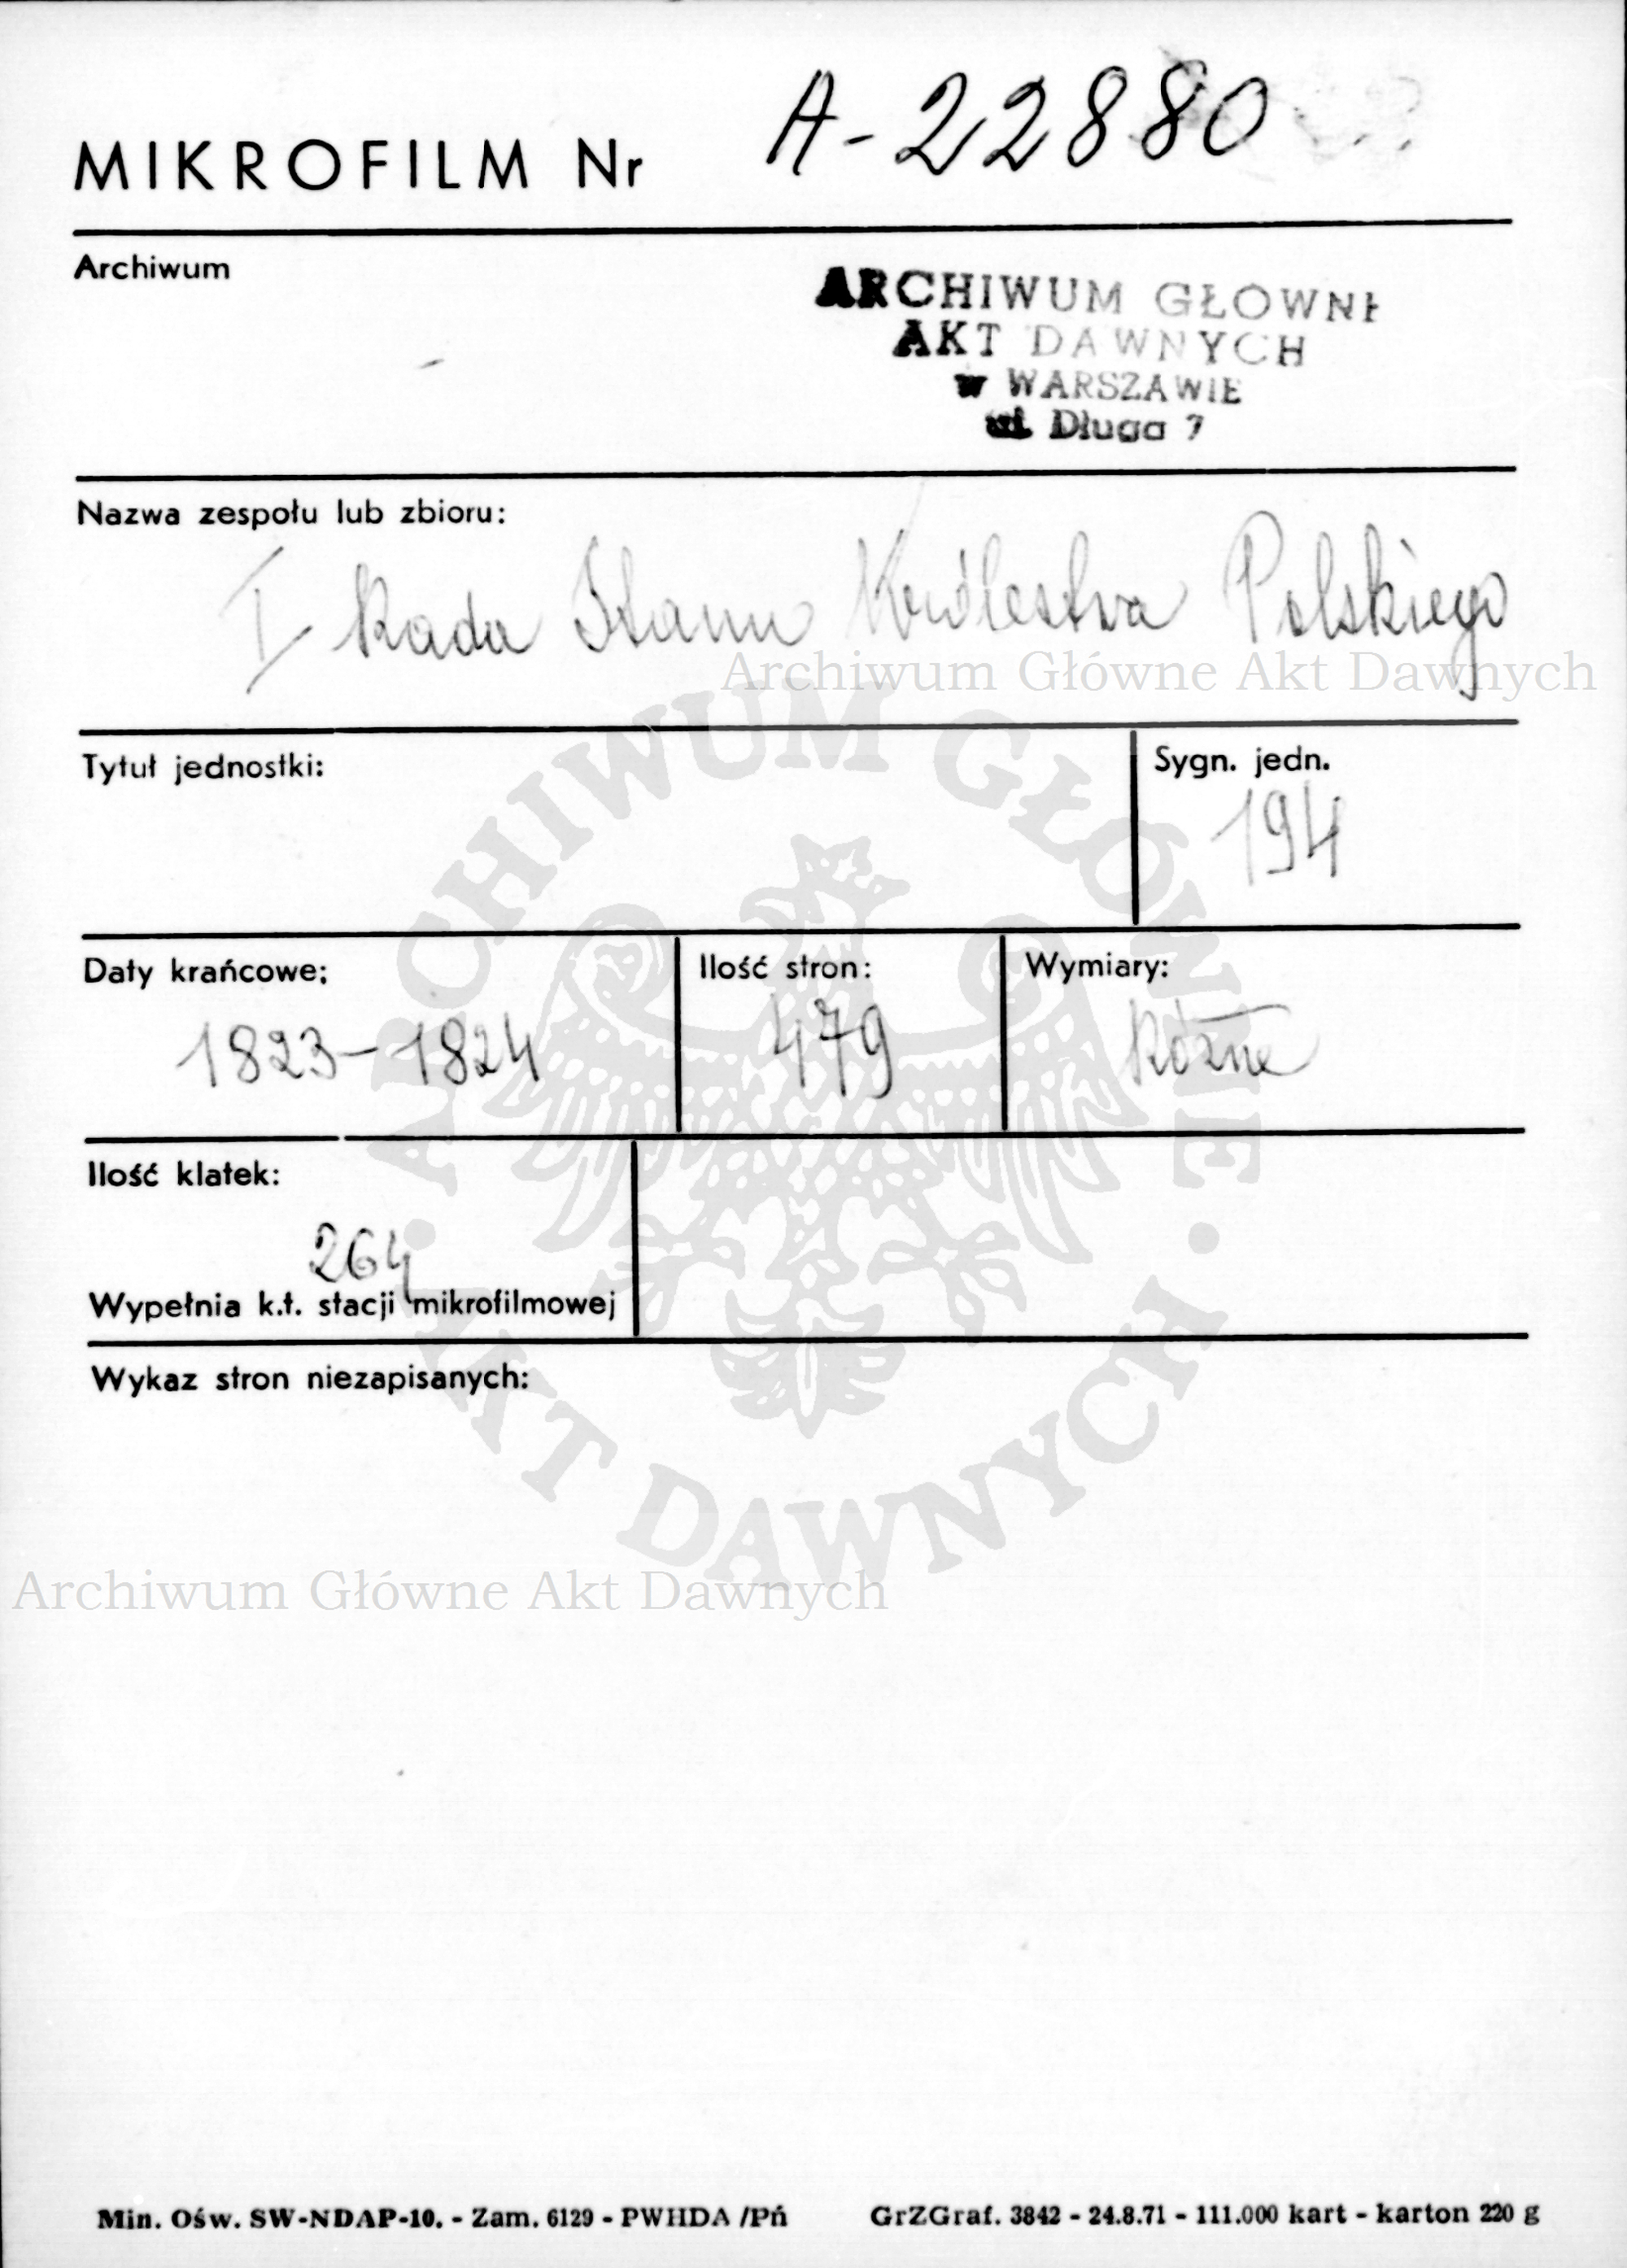 MIKROFILM Nr A-22880
Archiwum
ARCHIWUM GŁOWNE
AKT DAWNYCH
w WARSZAWIE
ul. Długa 7
Nazwa zespołu lub zbioru:
I Rada Stanu Królestwa Polskiego
Archiwum Główne Akt Dawnych
Tytuł jednostki:
Sygn. jedn.
194
Daty krańcowe:
1823-1824
Ilość stron:
479
Wymiary:
Różne
Ilość klatek:
264
Wypełnia k.t. stacji mikrofilmowej
Wykaz stron niezapisanych:
ARCHIWUM GŁÓWNE
AKT DAWNYCH
Archiwum Główne Akt Dawnych
Min. Ośw. SW-NDAP-10. - Zam. 6129 - PWHDA /Pń GrZGraf. 3842 - 24.8.71 - 111.000 kart - karton 220 g